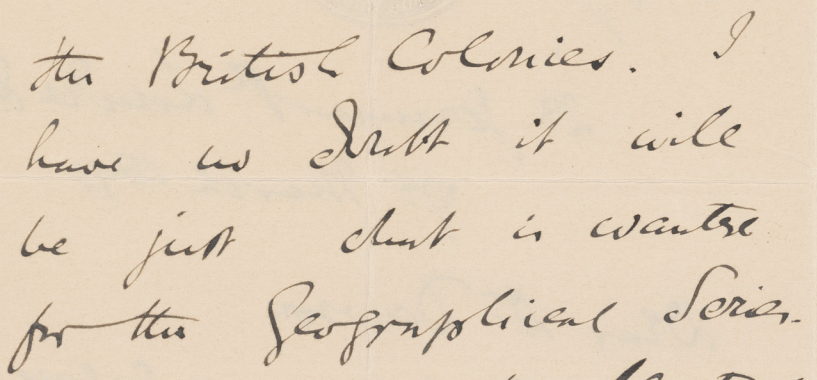 the British Colonies. I
have no doubt it will
be just what is wanted
for the Geographical Series.